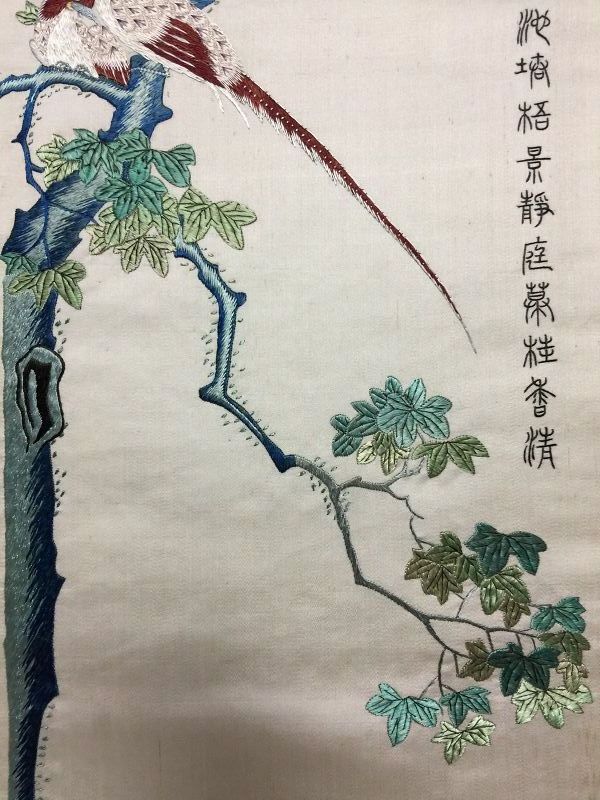 池塘梧景靜庭幕桂香清